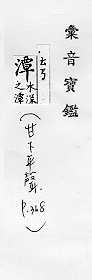 彙音寶鑑
出時
潭
水深
之潭
(甘下平聲)
P.368